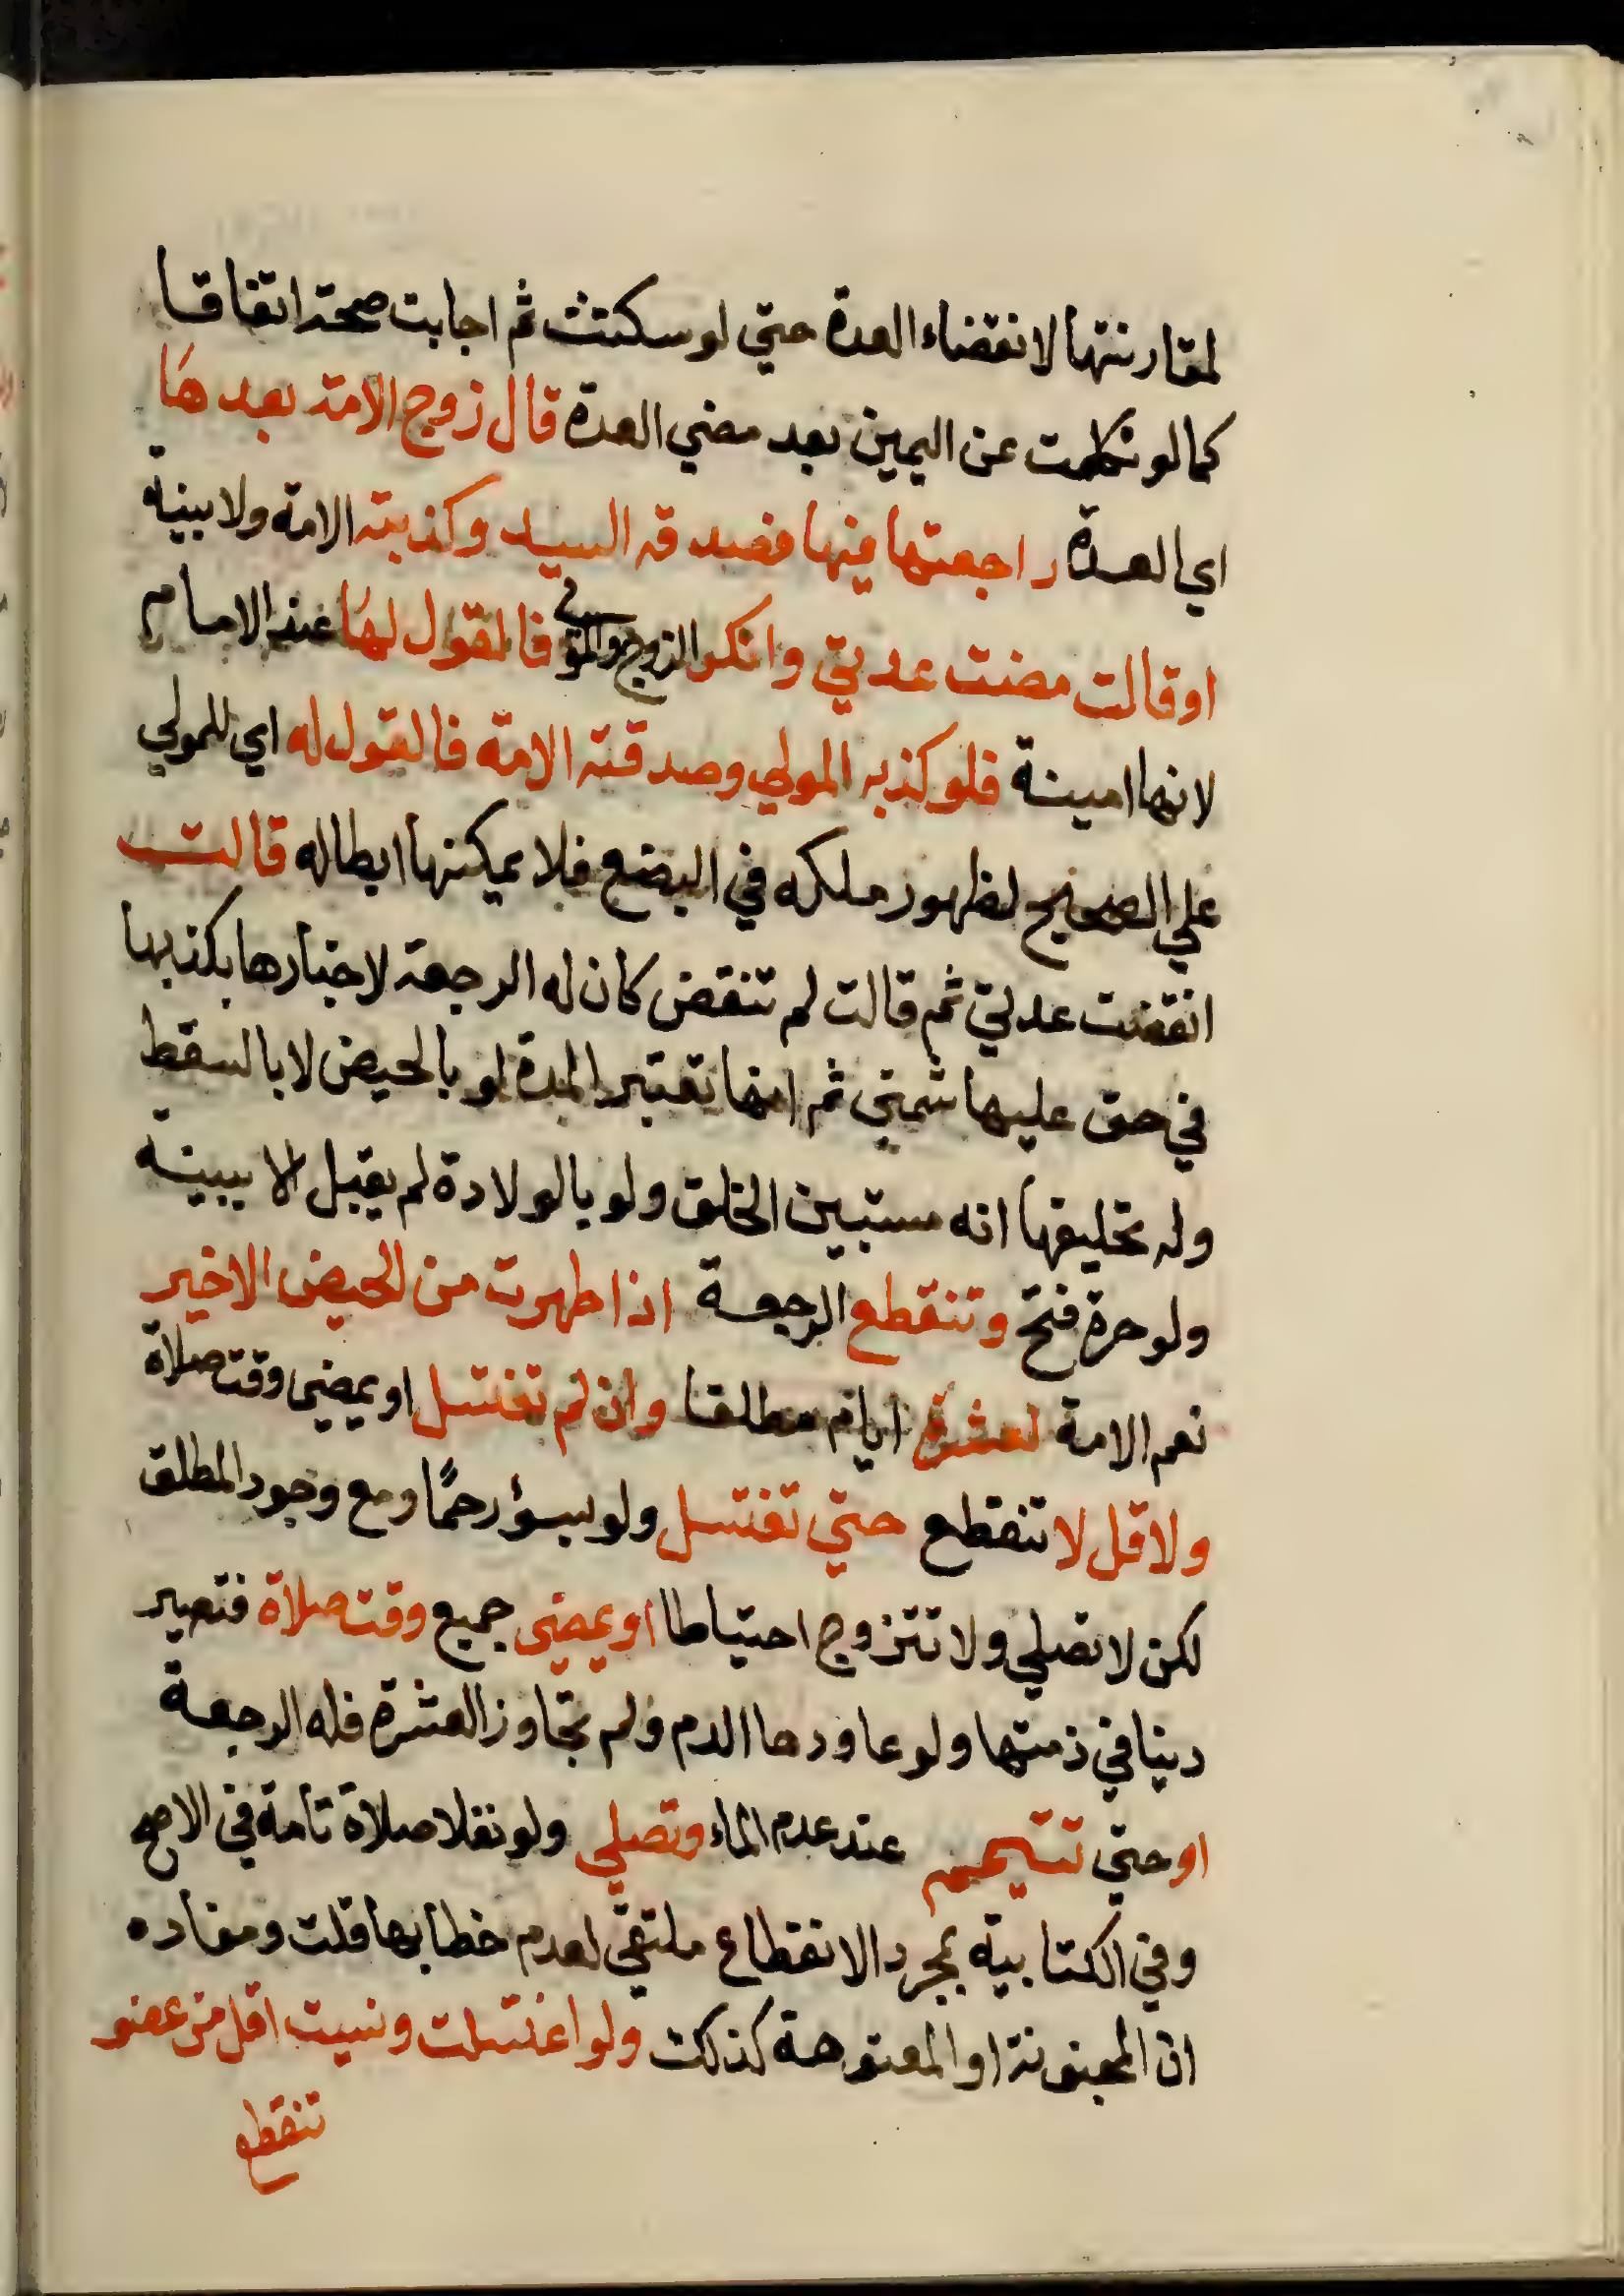 لمقارنتها لانقضاء العدة حتي لو سكتت ثم اجابت صحت اتفاقا
كما لو نكلت عن اليمين بعد مضي العدة قال زوج الامة بعدها
اي العدة راجعتها فيها فصدقه السيد وكذبته الامة ولا بينة
او قالت مضت عدتي وانكر الزوج والمولي فالقول لها عند الامام
لانها امينة فلو كذبه المولي وصدقته الامة فالقول له اي للمولي
علي الصحيح لظهور ملكه في البضع فلا يمكنها ابطاله قالت
انقضت عدتي ثم قالت لم تنقض كان له الرجعة لاخبارها بكذبها
في حق عليها شمني ثم انما تعتبر المدة لو بالحيض لا بالسقط
وله تحليفها انه مستبين الخلق ولو بالولادة لم يقبل الا ببينة
ولو حرة فتح وتنقطع الرجعة اذا طهرت من الحيض الاخير
نعم الامة لعشرة ايام مطلقا وان لم تغتسل او يمضي وقت صلاة
ولاقل لا تنقطع حتي تغتسل ولو بسؤر حمار مع وجود المطلق
لكن لا تصلي ولا تتزوج احتياطا او يمضي جميع وقت صلاة فتصير
دينا في ذمتها ولو عاودها الدم ولم تجاوز العشرة فله الرجعة
او حتي تتيمم عند عدم الماء وتصلي ولو نفلا صلاة تامة في الاصح
وفي الكتابية بمجرد الانقطاع ملتقي لعدم خطابها قلت ومفاده
ان المجنونة او المعتوهة كذلك ولو اغتسلت ونسيت اقل من عضو
تنقطع